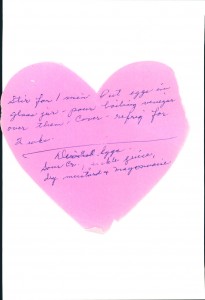 Stir for 1 min Put eggs in
glass jar - pour boiling vinegar
over them - Cover - refrig for
2 wks.
Deviled Eggs
Sour Cr, pickle juice,
Dry mustard & mayonnaise